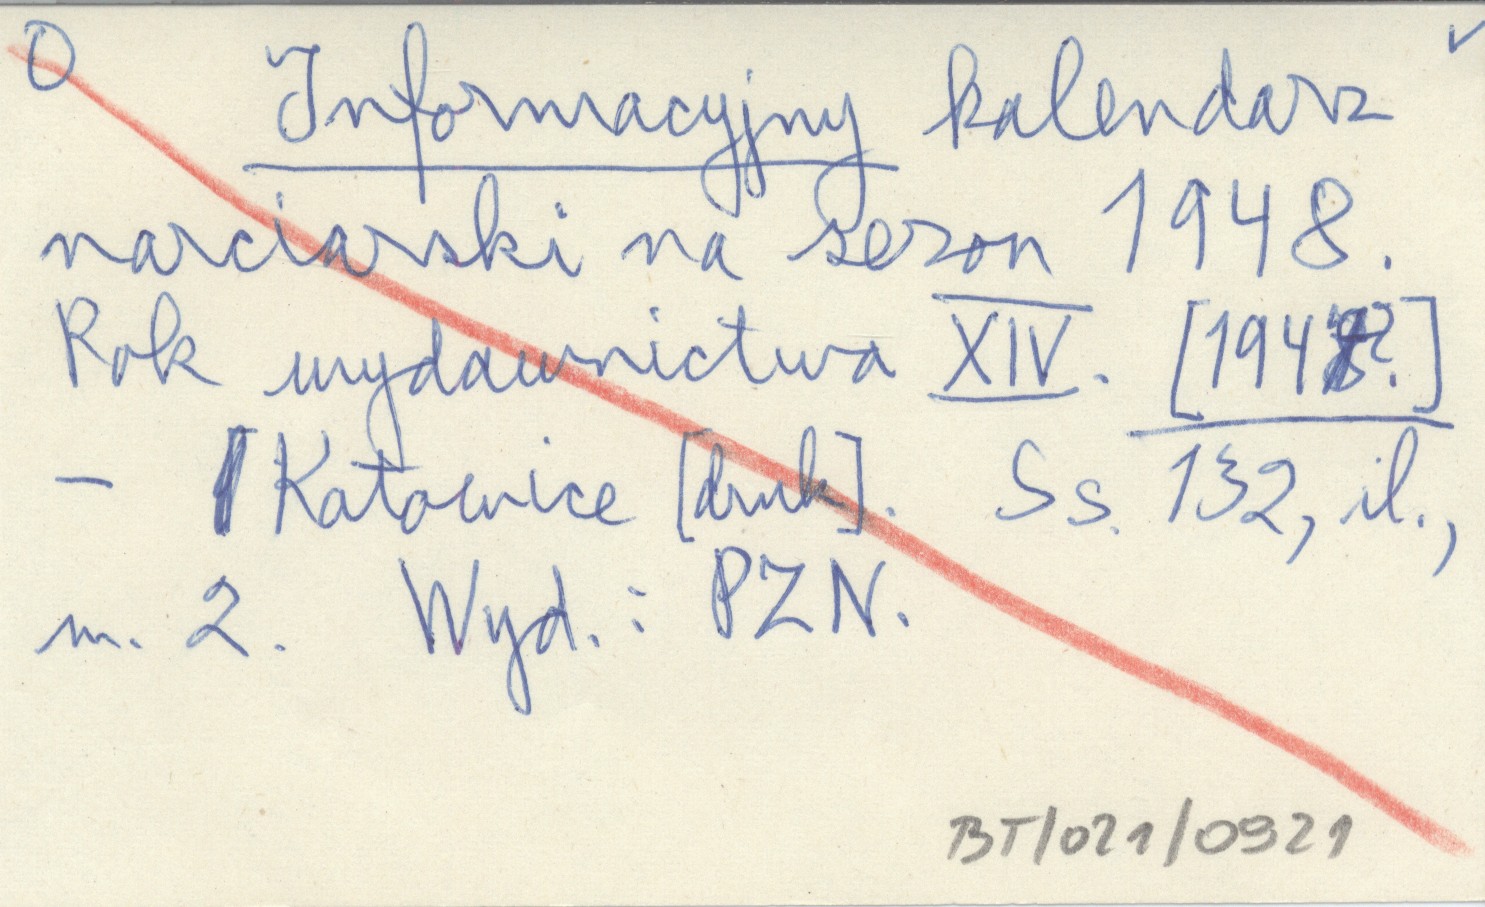 O Informacyjny kalendarz ✓
narciarski na sezon 1948.
Rok wydawnictwa XIV. [194 ?]
– Katowice [druk]. Ss. 132, il.,
m. 2. Wyd.: PZN.
BT/021/0921